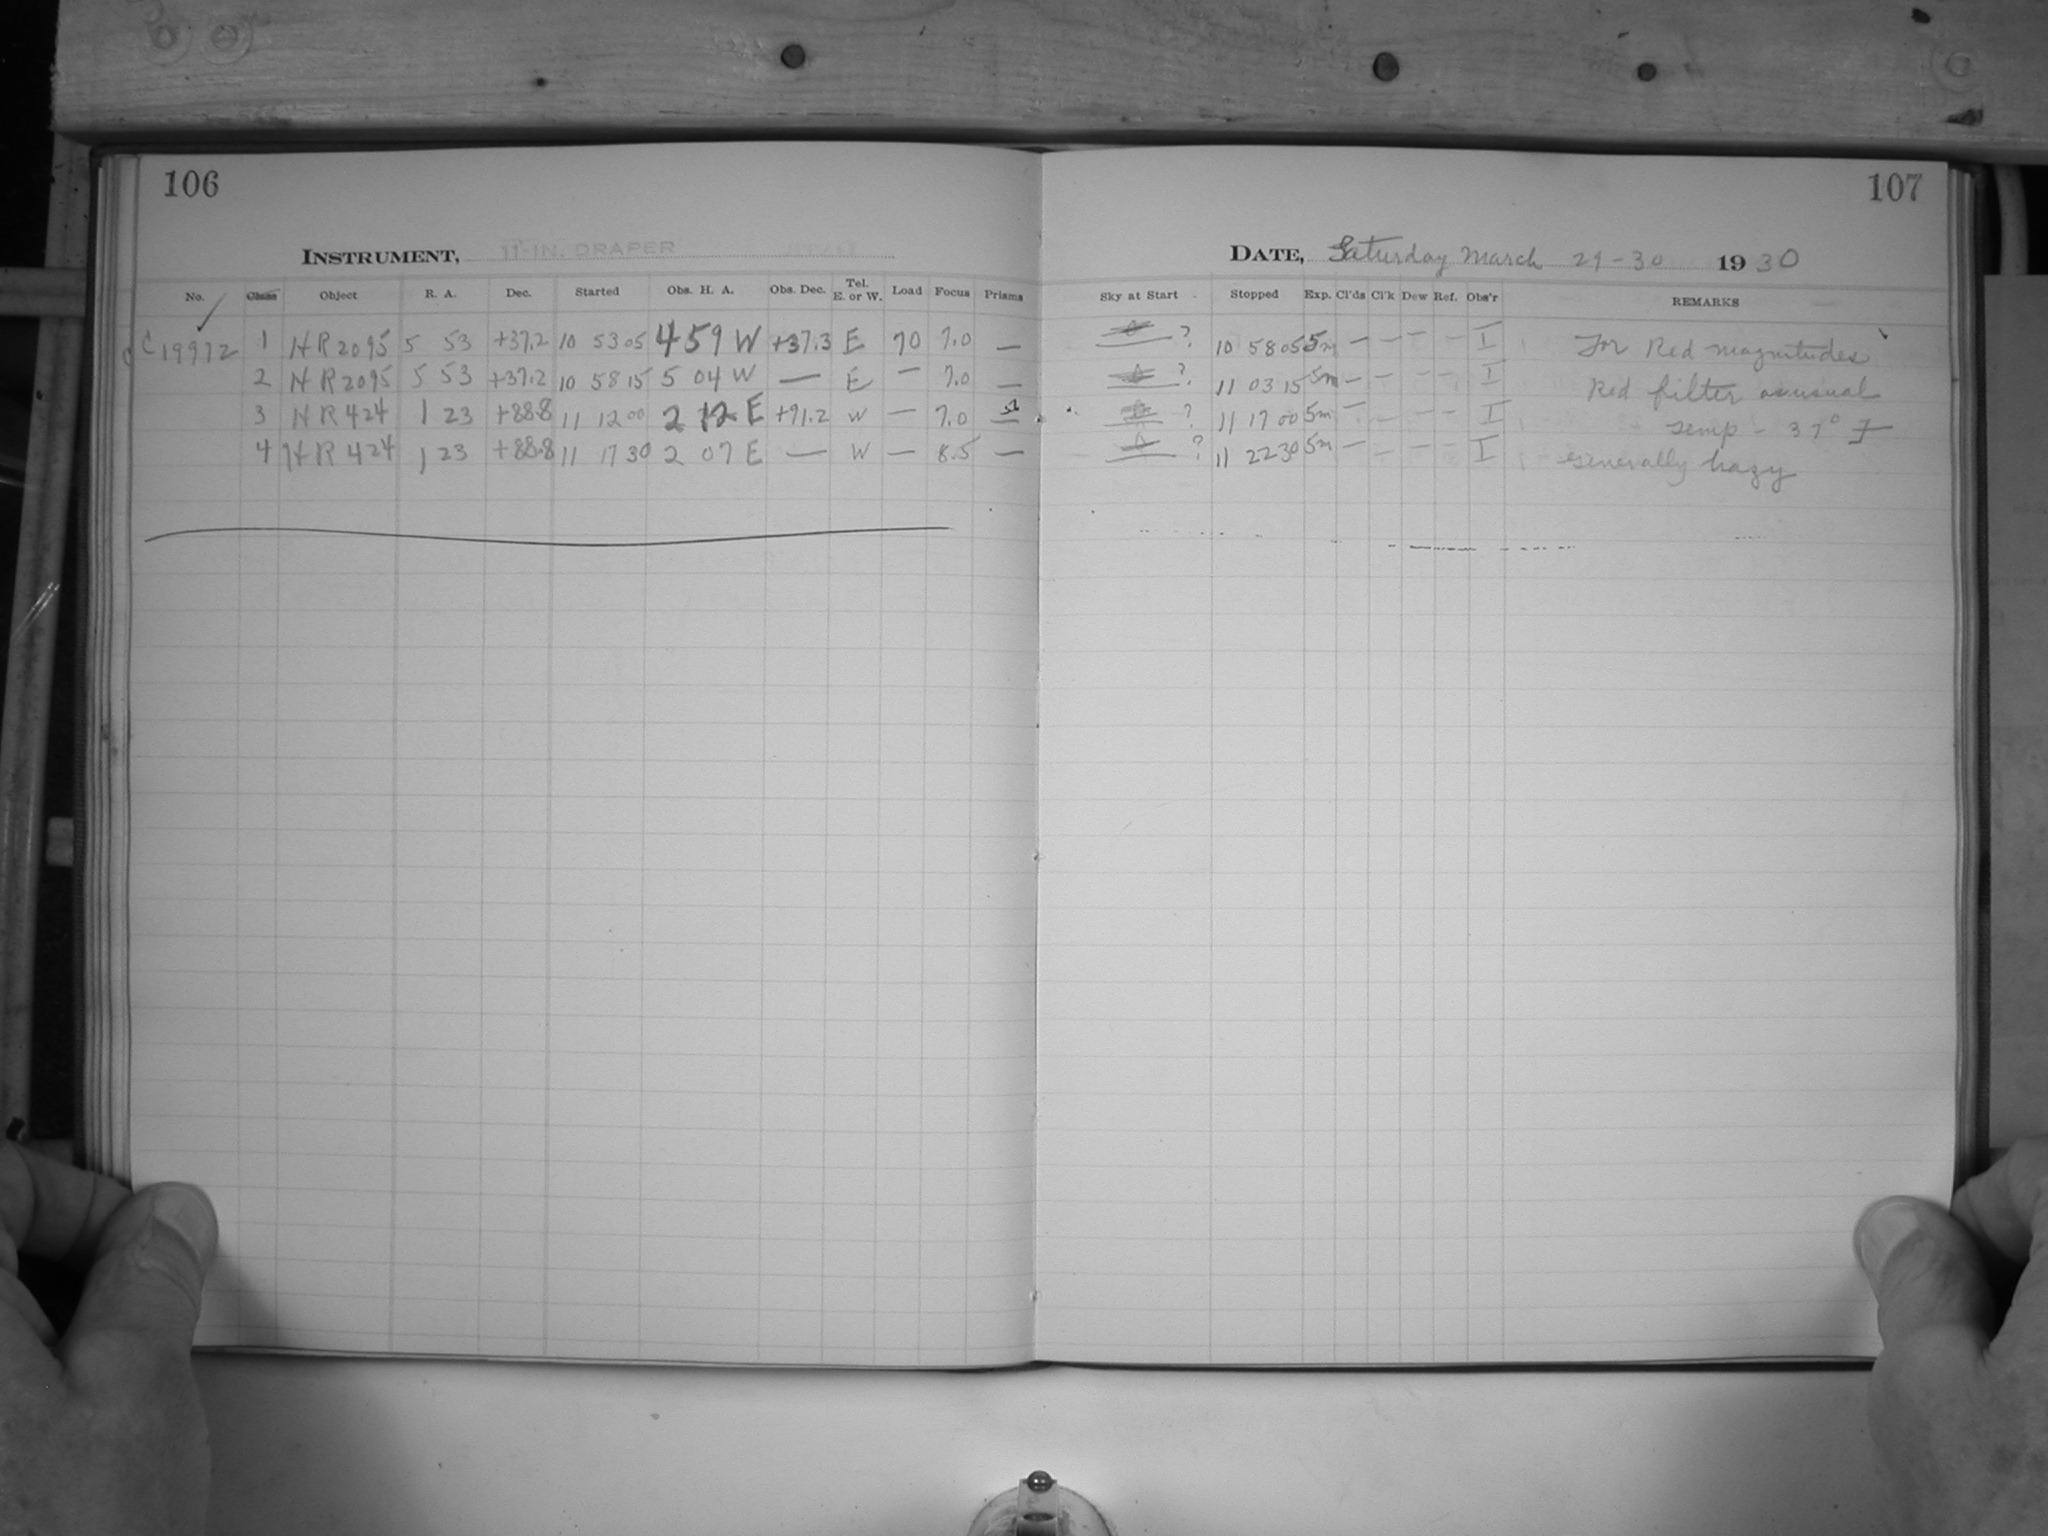 106
INSTRUMENT, 11-IN. DRAPER
No. Class Object R. A. Dec. Started Obs. H. A. Obs. Dec. Tel. E. or W. Load Focus Prisms
C 19972 1 HR 2095 5 53 +37.2 10 53 05 4 59 W +37.3 E 70 7.0 —
2 HR 2095 5 53 +37.2 10 58 15 5 04 W — E — 7.0 —
3 HR 424 1 23 +88.8 11 12 00 2 12 E +91.2 W — 7.0 —
4 HR 424 1 23 +88.8 11 17 30 2 07 E — W — 8.5 —
107
DATE, Saturday March 29-30 1930
Sky at Start Stopped Exp. Cl'ds Cl'k Dew Ref. Obs'r REMARKS
? 10 58 05 5m — — — — I For Red magnitudes
? 11 03 15 5m — — — — I Red filter as usual
? 11 17 00 5m — — — — I Temp - 37° F
? 11 22 30 5m — — — — I Generally hazy